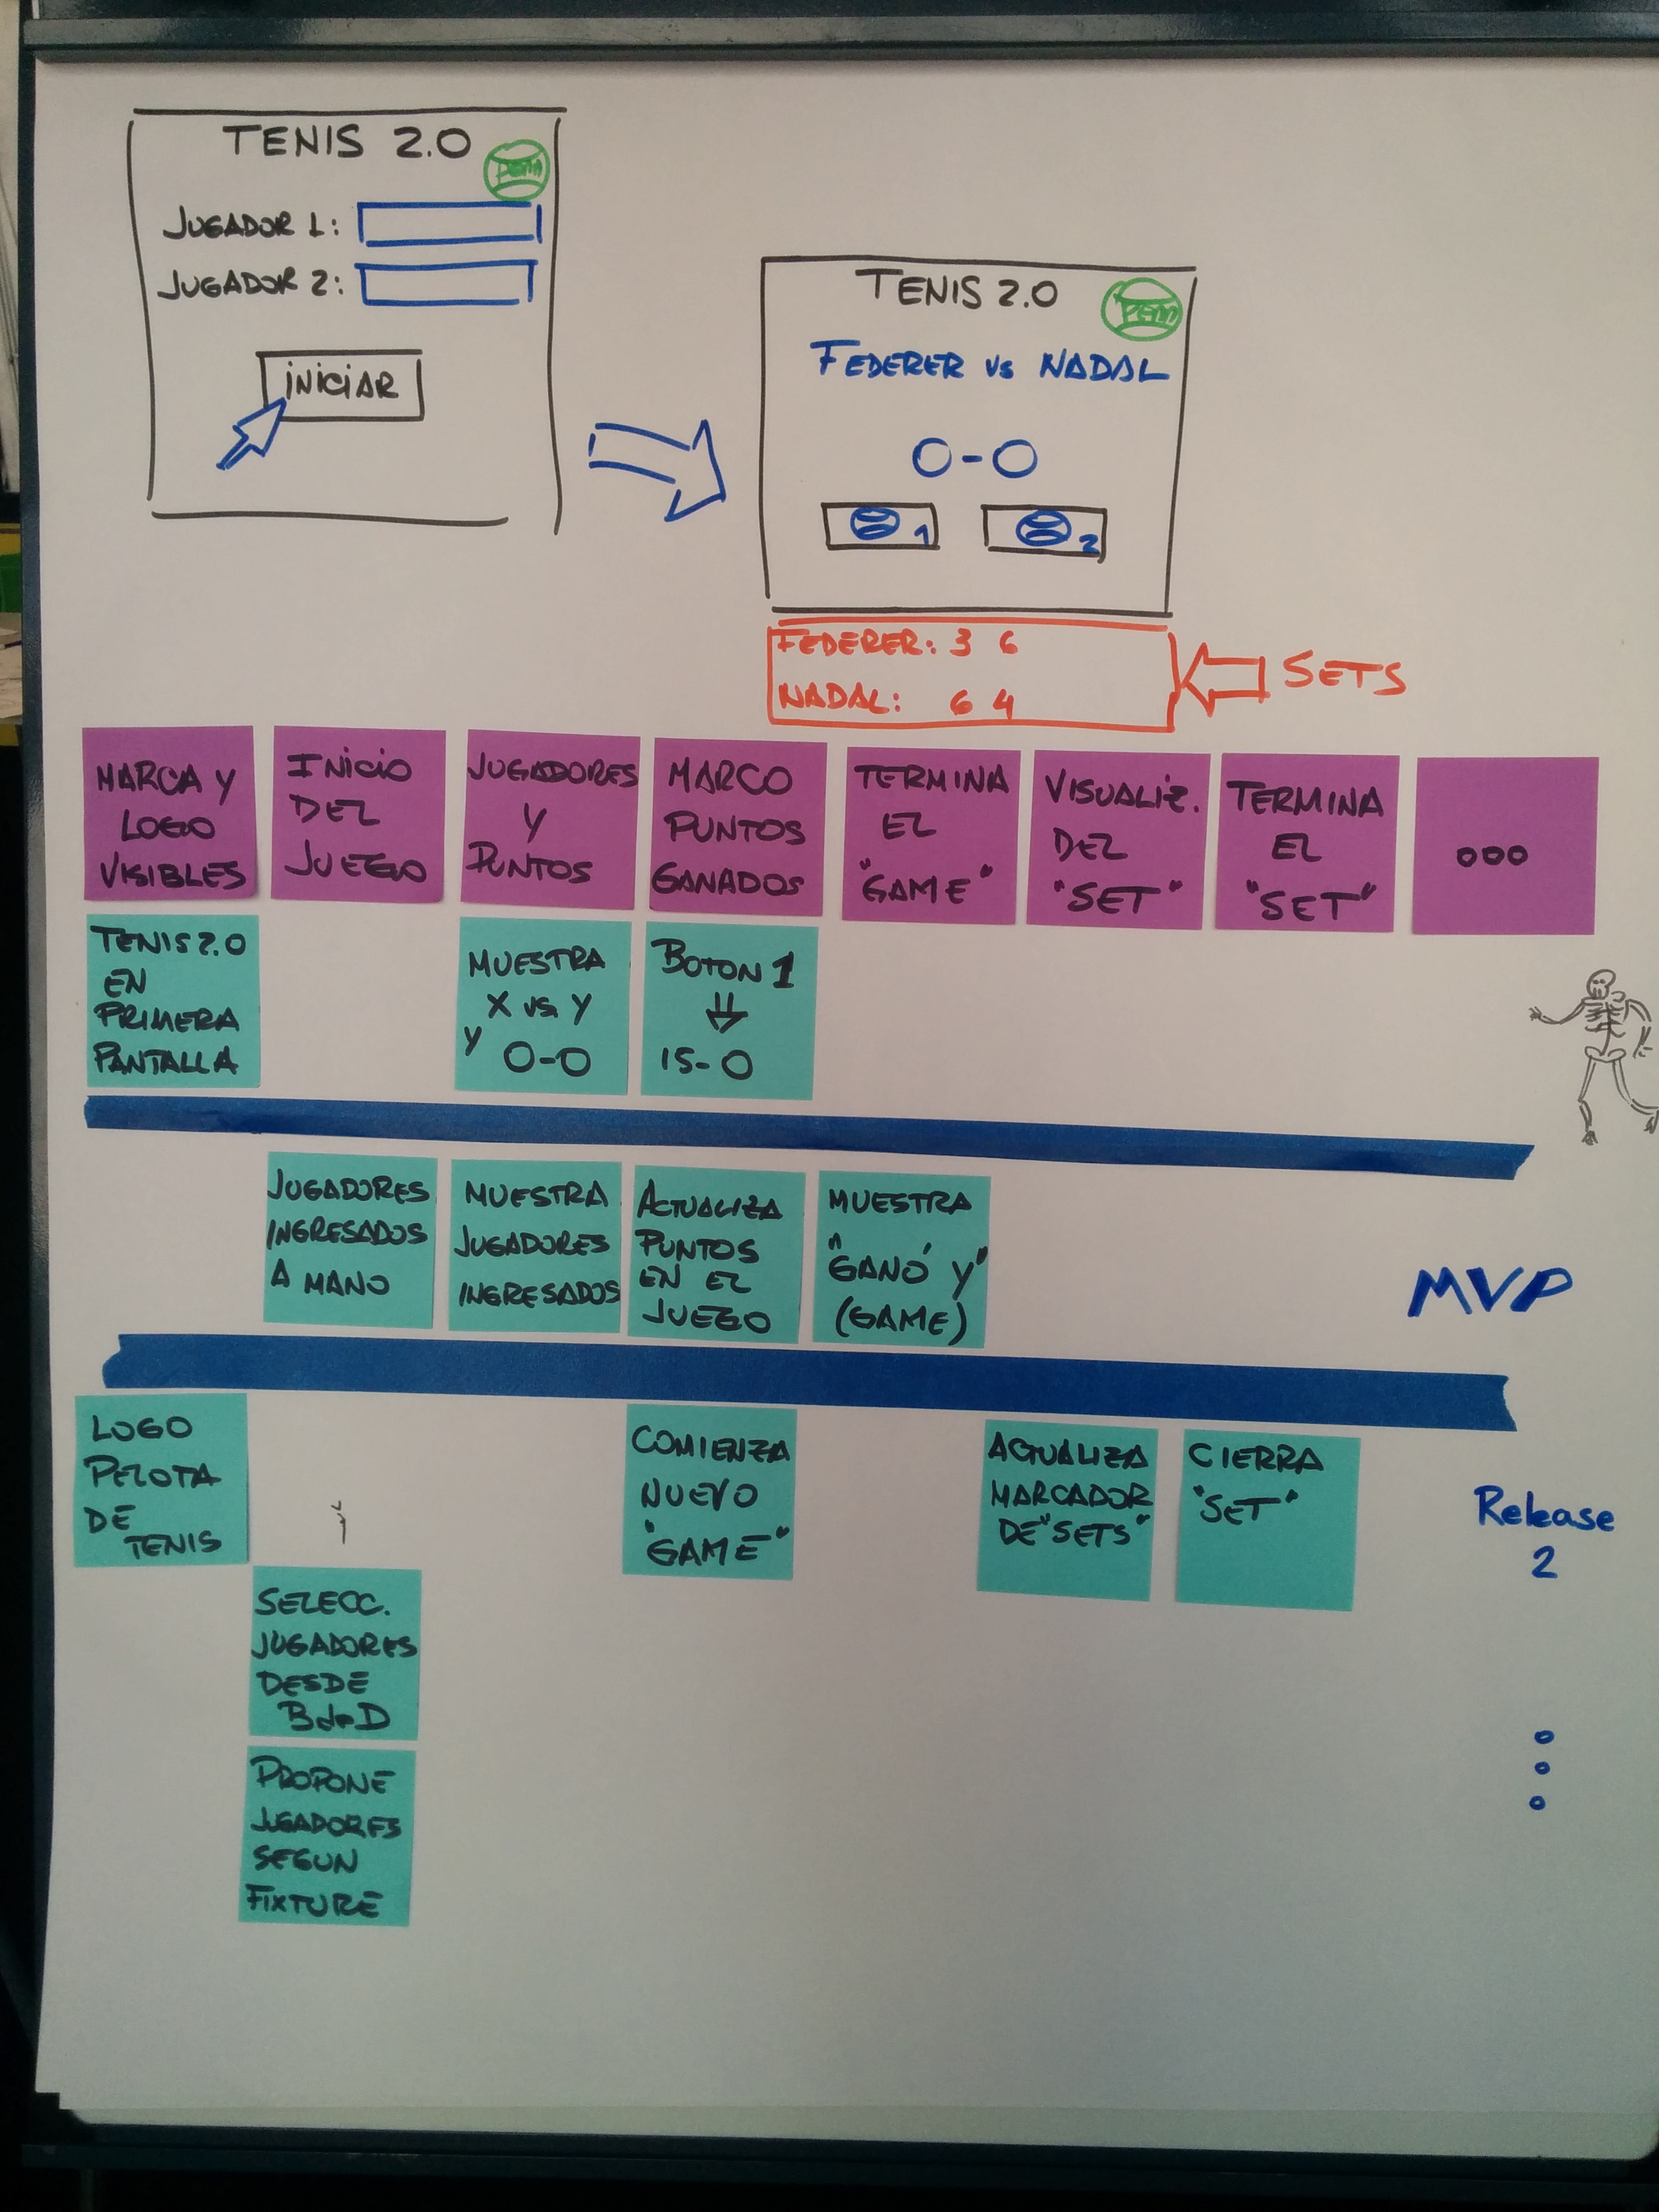 TENIS 2.0
JUGADOR 1:
JUGADOR 2:
INICIAR
TENIS 2.0
FEDERER vs NADAL
0-0
1
2
FEDERER: 3 6
NADAL: 6 4
SETS
MARCA Y
LOGO
VISIBLES
INICIO
DEL
JUEGO
JUGADORES
Y
PUNTOS
MARCO
PUNTOS
GANADOS
TERMINA
EL
"GAME"
VISUALIZ.
DEL
"SET"
TERMINA
EL
"SET"
ooo
TENIS 2.0
EN
PRIMERA
PANTALLA
MUESTRA
X vs. Y
Y 0-0
BOTON 1
⇓
15-0
JUGADORES
INGRESADOS
A MANO
MUESTRA
JUGADORES
INGRESADOS
ACTUALIZA
PUNTOS
EN EL
JUEGO
MUESTRA
"GANÓ Y"
(GAME)
MVP
LOGO
PELOTA
DE
TENIS
COMIENZA
NUEVO
"GAME"
ACTUALIZA
MARCADOR
DE "SETS"
CIERRA
"SET"
Release
2
SELECC.
JUGADORES
DESDE
BdeD
PROPONE
JUGADORES
SEGUN
FIXTURE